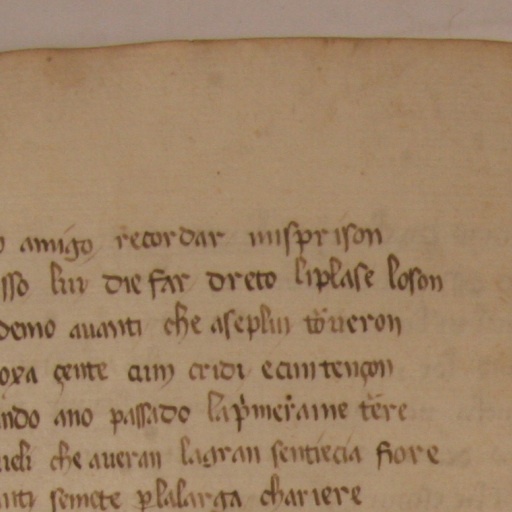 o amigo recordar misprison
sso lui die far dreto liplase loson
demo auanti che aseplui troueron
oxa çente cum cridi ecuntençon
ando ano passado laprimeraine tere
ueli che aueran lagran sentrecia fiore
anti semete plalarga chariere